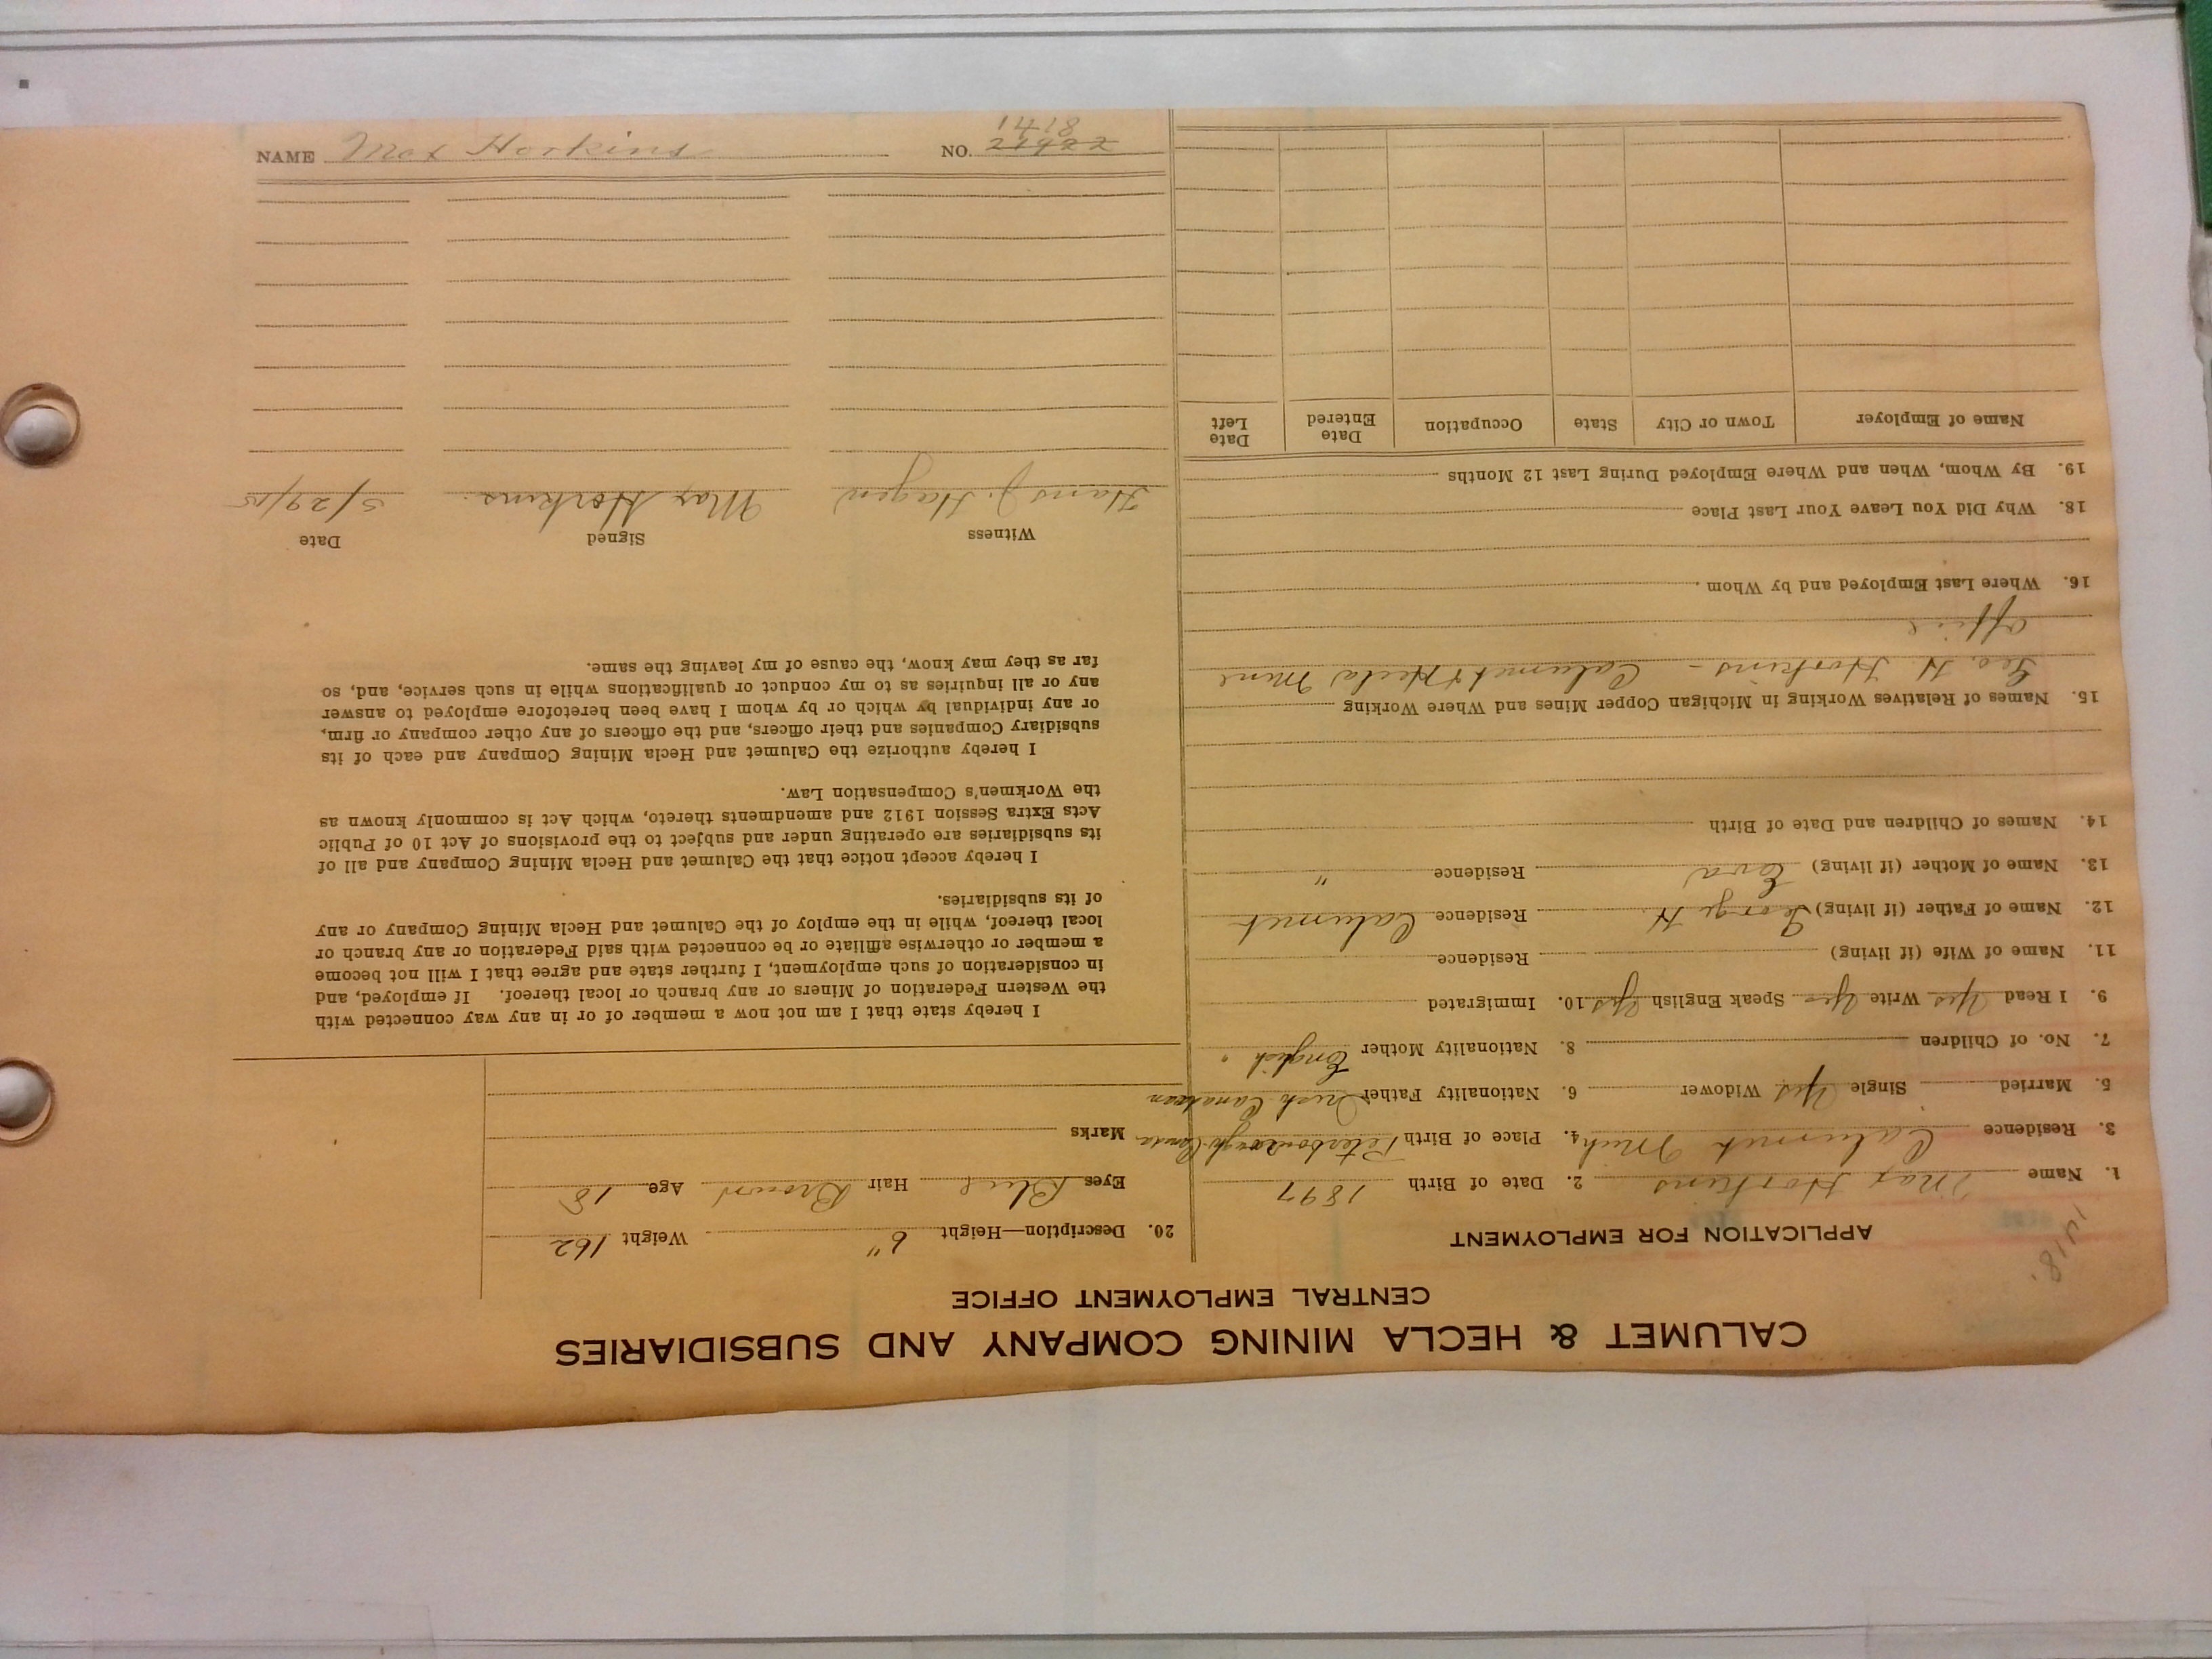 CALUMET & HECLA MINING COMPANY AND SUBSIDIARIES
CENTRAL EMPLOYMENT OFFICE
1418
APPLICATION FOR EMPLOYMENT
1. Name Max Horkins 2. Date of Birth 1897
3. Residence Calumet Mich 4. Place of Birth Peterborough Canada
5. Married Single Yes Widower 6. Nationality Father Irish Canadian
7. No. of Children 8. Nationality Mother English
9. I Read Yes Write Yes Speak English Yes 10. Immigrated
11. Name of Wife (if living) Residence
12. Name of Father (if living) George H. Residence Calumet
13. Name of Mother (if living) Eva Residence "
14. Names of Children and Date of Birth
15. Names of Relatives Working in Michigan Copper Mines and Where Working
Geo. H. Horkins - Calumet & Hecla Mine
Office
16. Where Last Employed and by Whom
18. Why Did You Leave Your Last Place
19. By Whom, When and Where Employed During Last 12 Months
Name of Employer Town or City State Occupation Date Entered Date Left
20. Description—Height 6" Weight 162
Eyes Blue Hair Brown Age 18
Marks
I hereby state that I am not now a member of or in any way connected with
the Western Federation of Miners or any branch or local thereof. If employed, and
in consideration of such employment, I further state and agree that I will not become
a member or otherwise affiliate or be connected with said Federation or any branch or
local thereof, while in the employ of the Calumet and Hecla Mining Company or any
of its subsidiaries.
I hereby accept notice that the Calumet and Hecla Mining Company and all of
its subsidiaries are operating under and subject to the provisions of Act 10 of Public
Acts Extra Session 1912 and amendments thereto, which Act is commonly known as
the Workmen's Compensation Law.
I hereby authorize the Calumet and Hecla Mining Company and each of its
subsidiary Companies and their officers, and the officers of any other company or firm,
or any individual by which or by whom I have been heretofore employed to answer
any or all inquiries as to my conduct or qualifications while in such service, and, so
far as they may know, the cause of my leaving the same.
Witness Signed Date
Hans J. Hagen Max Horkins. 5/29/15
NAME Max Horkins NO. 1418